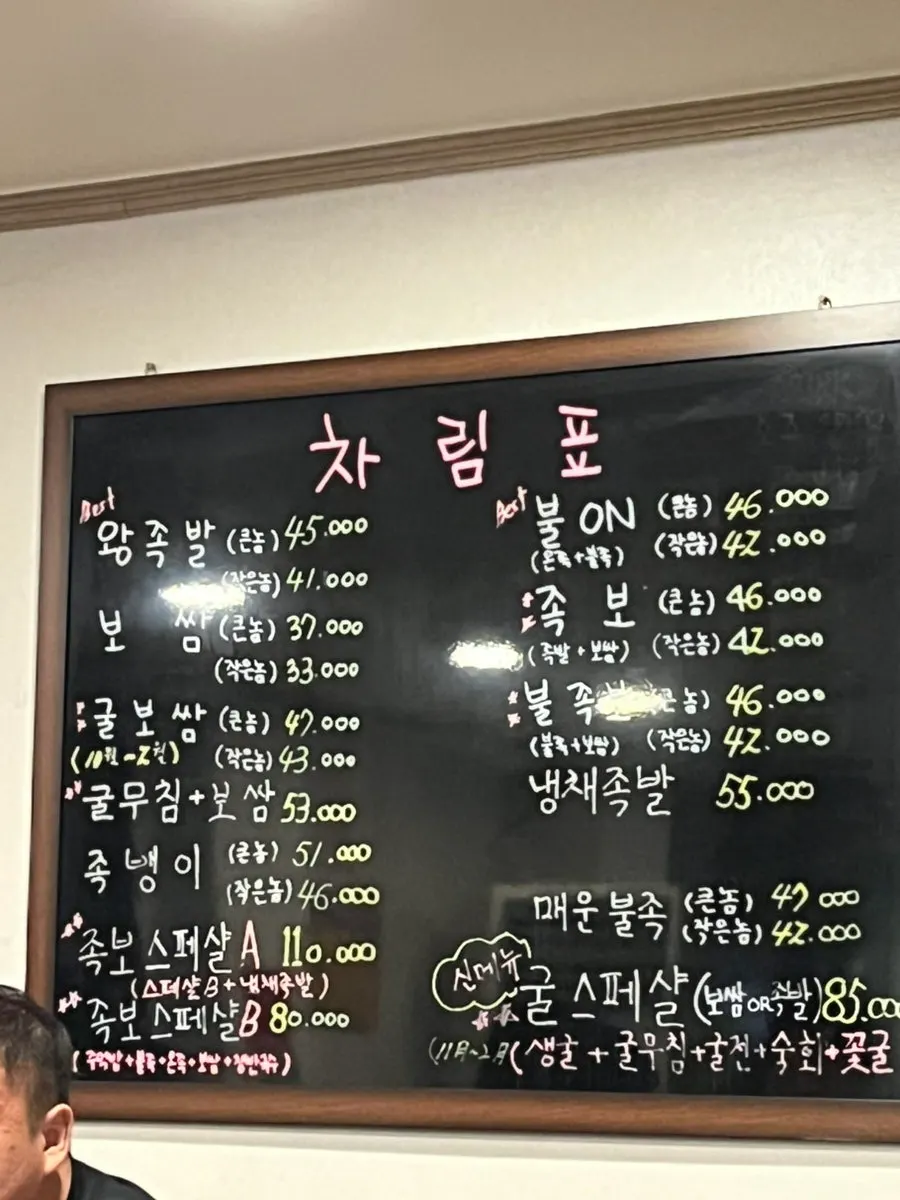 차림표
Best
왕족발 (큰놈) 45.000
(작은놈) 41.000
보쌈 (큰놈) 37.000
(작은놈) 33.000
굴보쌈 (큰놈) 47.000
(10월~2월) (작은놈) 43.000
굴무침+보쌈 53.000
족뱅이 (큰놈) 51.000
(작은놈) 46.000
족보스페샬A 110.000
(스페샬B+냉채족발)
족보스페샬B 80.000
(주먹밥+불족+온족+보쌈+쟁반국수)
Best
불ON (큰놈) 46.000
(온족+불족) (작은놈) 42.000
족보 (큰놈) 46.000
(족발+보쌈) (작은놈) 42.000
불족 (큰놈) 46.000
(불족+보쌈) (작은놈) 42.000
냉채족발 55.000
매운불족 (큰놈) 47 000
(작은놈) 42.000
신메뉴
굴스페샬 (보쌈OR족발) 85.00
(11月~2月) (생굴+굴무침+굴전+숙회+꽃굴